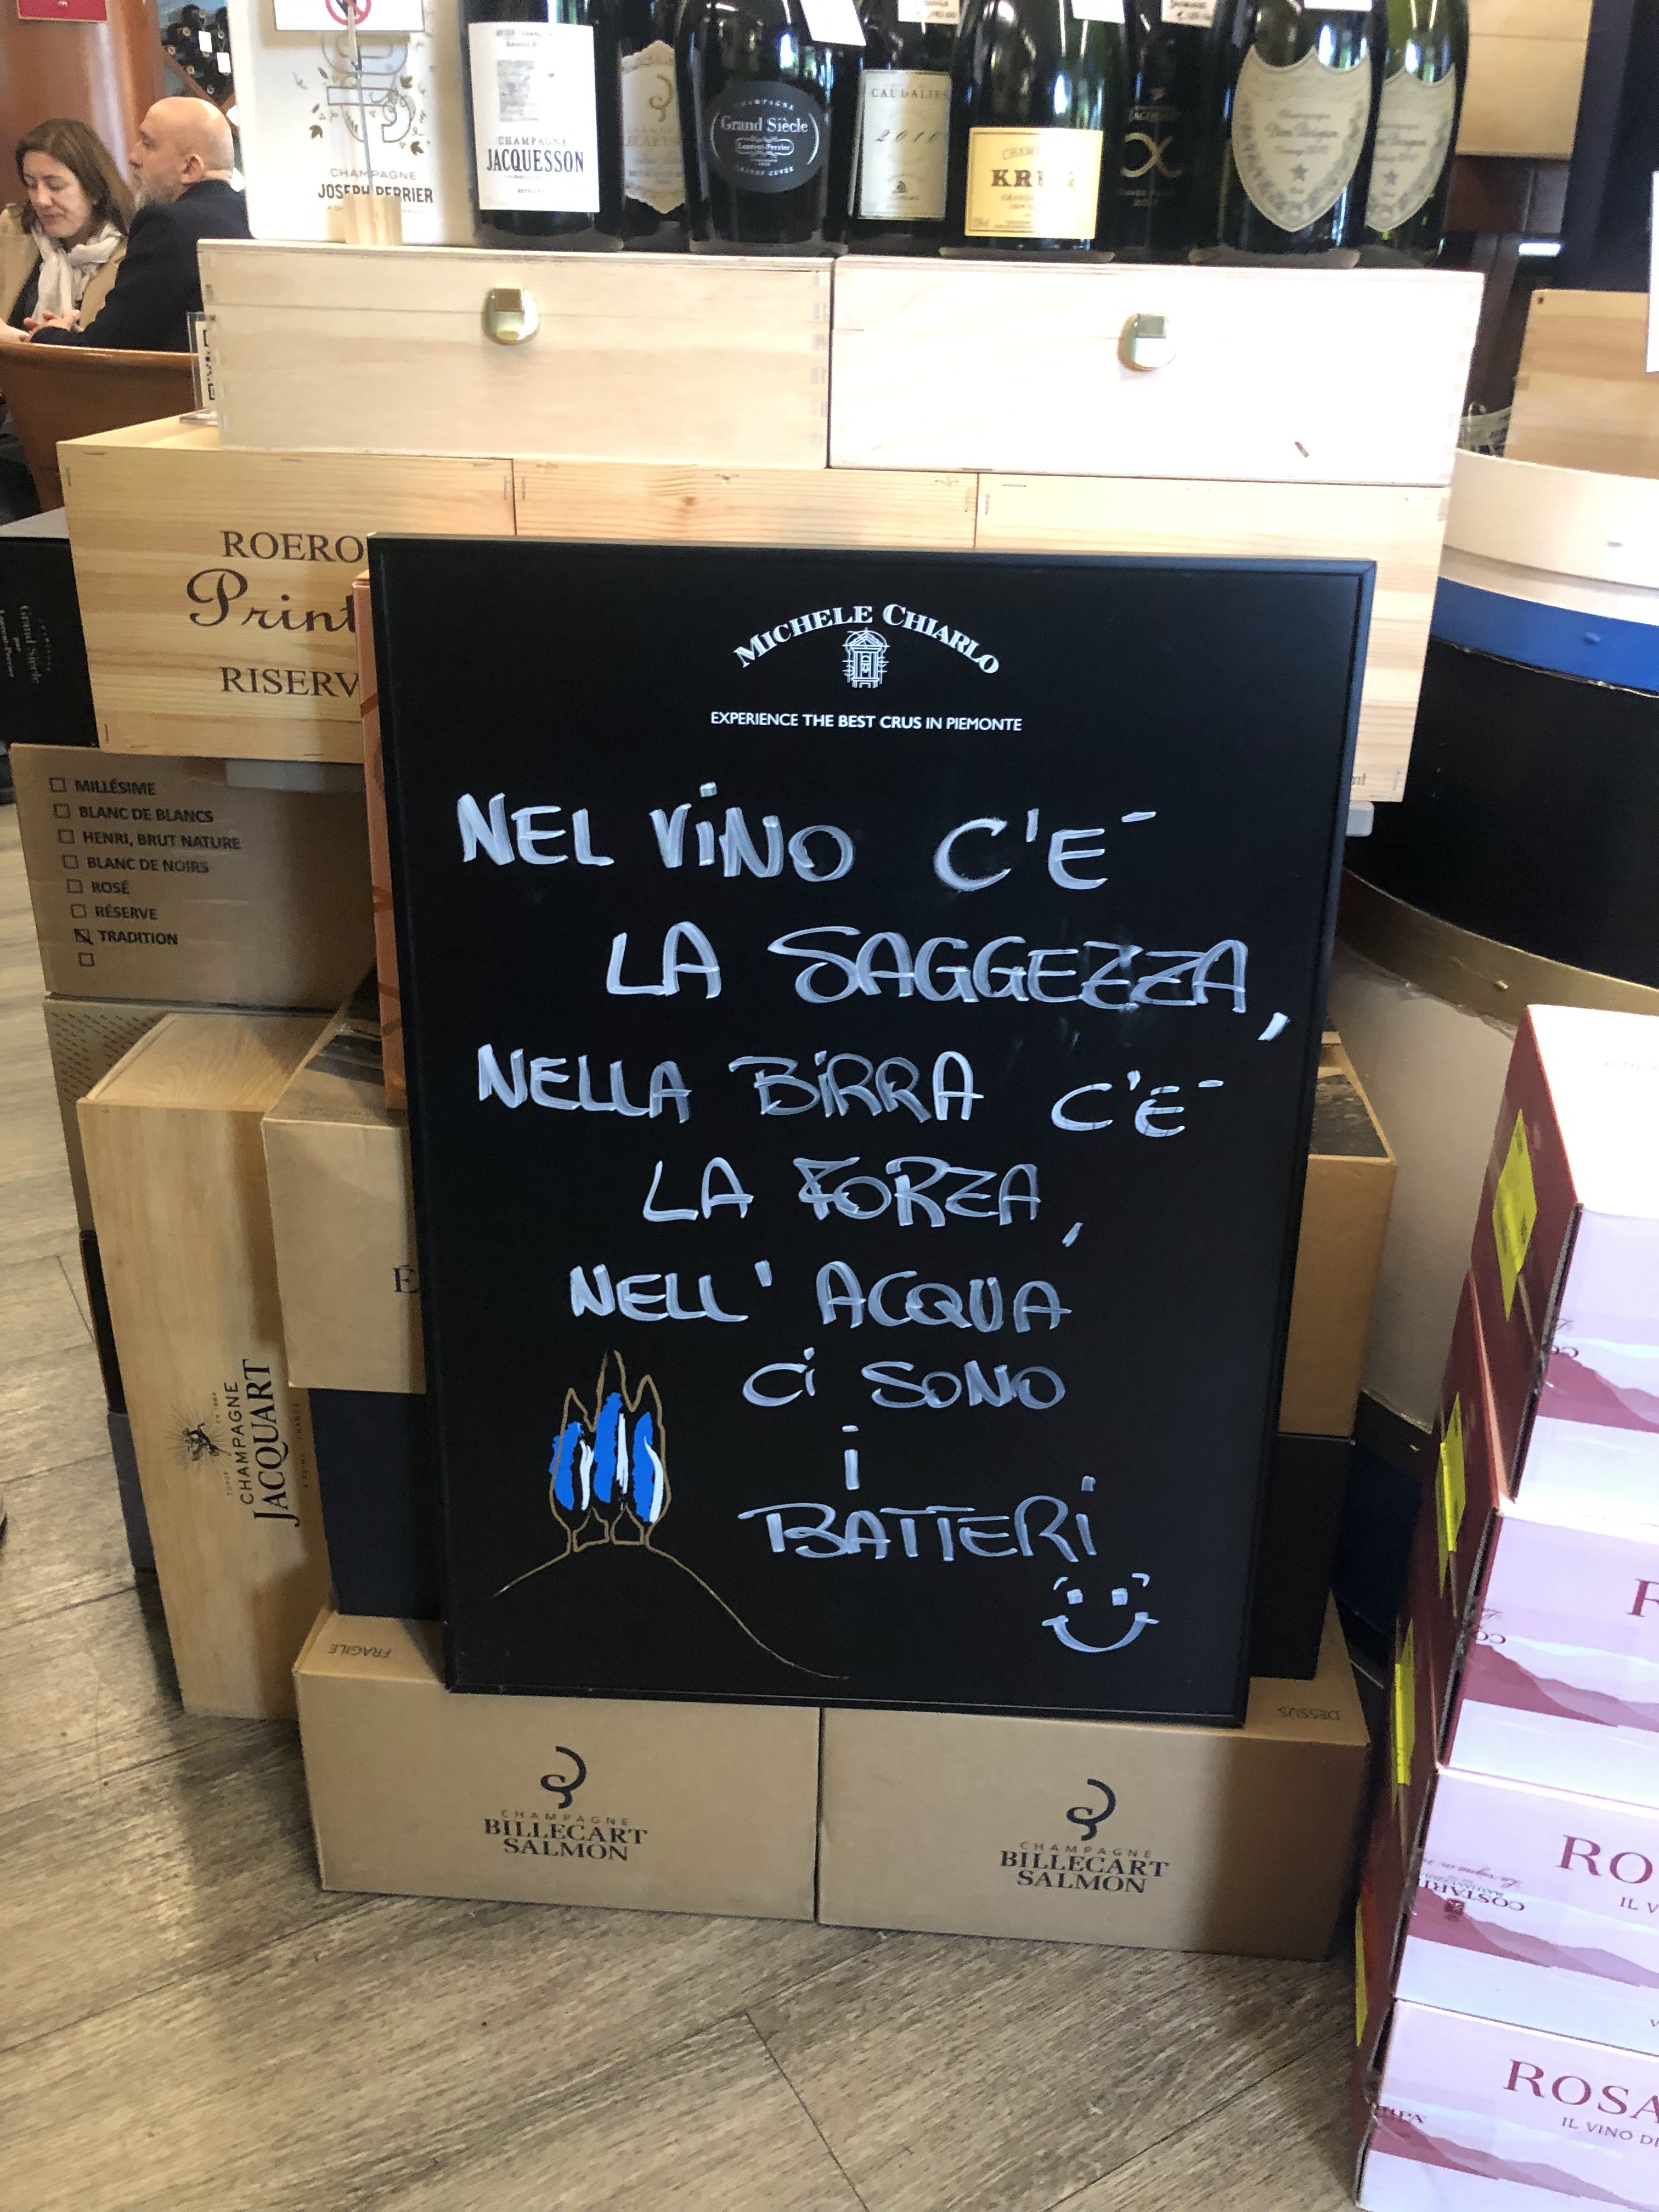 CHAMPAGNE
JOSEPH PERRIER
CHAMPAGNE
JACQUESSON
CHAMPAGNE
Grand Siècle
Laurent-Perrier
GRANDE CUVÉE
2010
KRUG
JACQUART
Champagne
Dom Pérignon
ROERO
Print
RISERV
MICHELE CHIARLO
EXPERIENCE THE BEST CRUS IN PIEMONTE
NEL VINO C'È
LA SAGGEZZA,
NELLA BIRRA C'È
LA FORZA,
NELL' ACQUA
CI SONO
I
BATTERI
MILLÉSIME
BLANC DE BLANCS
HENRI, BRUT NATURE
BLANC DE NOIRS
ROSÉ
RÉSERVE
TRADITION
Grand Siècle
CHAMPAGNE
JACQUART
FRAGILE
DESSUS
CHAMPAGNE
BILLECART
SALMON
CHAMPAGNE
BILLECART
SALMON
RO
IL V
ROSA
IL VINO DI